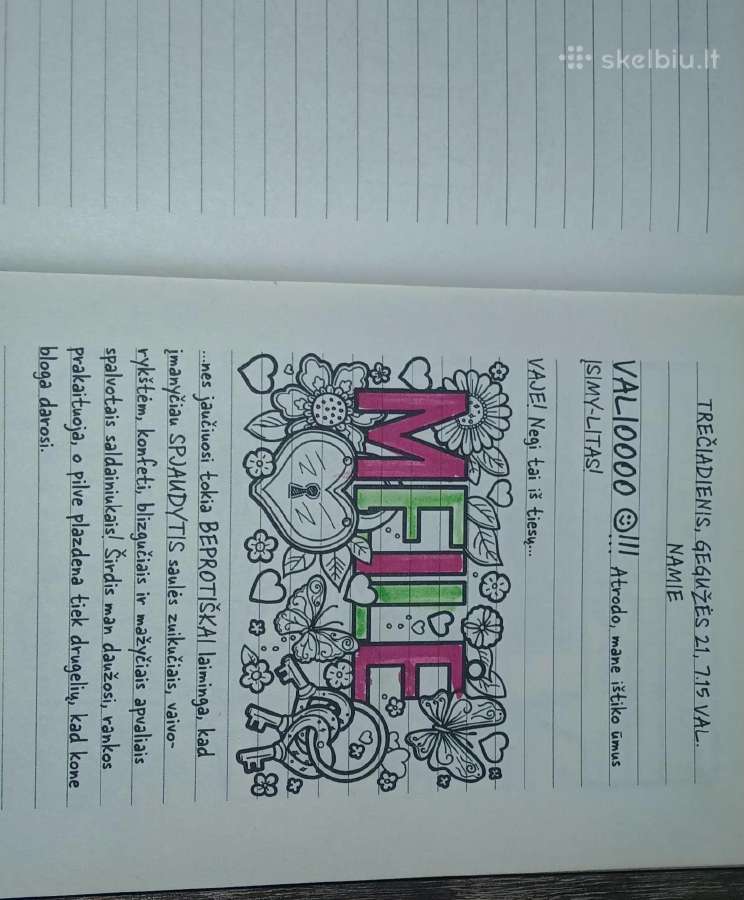 skelbiu.lt
TREČIADIENIS, GEGUŽĖS 21, 7.15 VAL.
NAMIE
VALIOOOO ☺!!! Atrodo, mane ištiko ūmus
ĮSIMY-LITAS!
VAJE! Negi tai iš tiesų...
MEILĖ
...nes jaučiuosi tokia BEPROTIŠKAI laiminga, kad
įmanyčiau SPJAUDYTIS saulės zuikučiais, vaivo-
rykštėm, konfeti, blizgučiais ir mažyčiais apvaliais
spalvotais saldainiukais! Širdis man daužosi, rankos
prakaituoja, o pilve plazdena tiek drugelių, kad kone
bloga darosi.